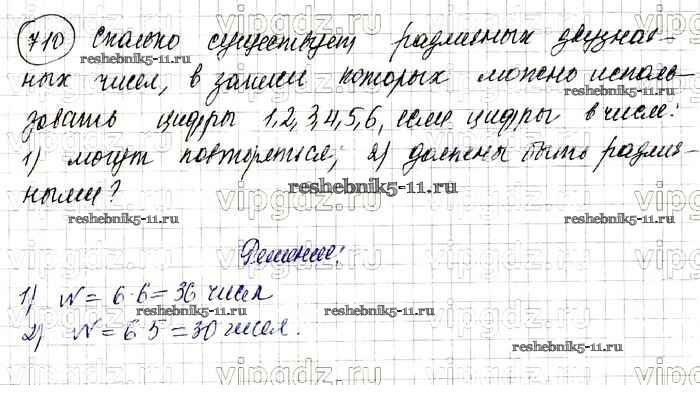 710 Сколько существует различных двузнач-
ных чисел, в записи которых можно исполь-
зовать цифры 1,2,3,4,5,6, если цифры в числе:
1) могут повторяться; 2) должны быть различ-
ными?
Решение:
1) N = 6·6 = 36 чисел
2) N = 6·5 = 30 чисел.
vipgdz.ru
reshebnik5-11.ru